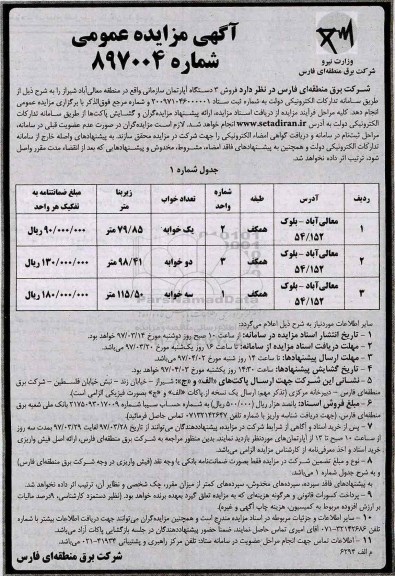 آگهی مزایده عمومی
شماره ۸۹۷۰۰۴
وزارت نیرو
شرکت برق منطقه‌ای فارس
شرکت برق منطقه‌ای فارس در نظر دارد فروش ۳ دستگاه آپارتمان سازمانی واقع در منطقه معالی‌آباد شیراز را به شرح ذیل از
طریق سامانه تدارکات الکترونیکی دولت به شماره ثبت ستاد و شماره مرجع فوق‌الذکر با برگزاری مزایده عمومی
انجام دهد. کلیه مراحل فرآیند مزایده از دریافت اسناد مزایده، ارائه پیشنهاد مزایده‌گران و گشایش پاکت‌ها از طریق سامانه تدارکات
الکترونیکی دولت به آدرس www.setadiran.ir انجام خواهد شد. لازم است مزایده‌گران در صورت عدم عضویت قبلی در سامانه،
مراحل ثبت‌نام در سامانه و دریافت گواهی امضاء الکترونیکی را جهت شرکت در مزایده محقق سازند. به پیشنهادهای واصله خارج از سامانه
تدارکات الکترونیکی دولت و همچنین به پیشنهادهای فاقد امضاء، مشروط، مخدوش و پیشنهادهایی که بعد از انقضاء مدت مقرر واصل
شود، ترتیب اثر داده نخواهد شد.
جدول شماره ۱
ردیف آدرس طبقه شماره واحد تعداد خواب زیربنا متر مبلغ ضمانتنامه به تفکیک هر واحد
۱ معالی‌آباد - بلوک ۵۴/۱۵۲ همکف ۲ یک خوابه ۷۹/۸۵ متر ۹۰/۰۰۰/۰۰۰ ریال
۲ معالی‌آباد - بلوک ۵۴/۱۵۲ همکف ۳ دو خوابه ۹۸/۴۱ متر ۱۳۰/۰۰۰/۰۰۰ ریال
۳ معالی‌آباد - بلوک ۵۴/۱۵۲ همکف ۱ سه خوابه ۱۱۵/۵۰ متر ۱۸۰/۰۰۰/۰۰۰ ریال
ParsNamadData
سایر اطلاعات موردنیاز به شرح ذیل اعلام می‌گردد:
۱ - تاریخ انتشار اسناد مزایده در سامانه: از ساعت ۱۰ صبح روز دوشنبه مورخ ۹۷/۰۳/۱۴ خواهد بود.
۲ - مهلت دریافت اسناد مزایده از سامانه: تا ساعت ۱۶ روز یک‌شنبه مورخ ۹۷/۰۳/۲۰ می‌باشد.
۳ - مهلت ارسال پیشنهادها: تا ساعت ۱۴ روز شنبه مورخ ۹۷/۰۴/۰۲ می‌باشد.
۴ - تاریخ گشایش پیشنهادها: ساعت ۱۴:۳۰ روز یکشنبه مورخ ۹۷/۰۴/۰۲ خواهد بود.
۵ - نشانی این شرکت جهت ارسال پاکت‌های «الف» و «ج»: شیراز - خیابان زند - نبش خیابان فلسطین - شرکت برق
منطقه‌ای فارس - دبیرخانه مرکزی (تذکر مهم: ارسال یک نسخه از پاکات «الف» و «ج» بصورت فیزیکی الزامی است).
۶ - مبلغ فروش اسناد: پانصد هزار ریال (۵۰۰/۰۰۰ ریال) به شماره حساب سیبا بانک ملی شعبه برق
منطقه‌ای فارس، (جهت دریافت شناسه واریز با شماره تلفن ۰۷۱۳۲۱۴۲۶۴۷ تماس حاصل فرمائید)
۷ - پس از خرید اسناد و آگاهی از شرایط شرکت در مزایده، پیشنهاددهندگان می‌توانند از تاریخ ۹۷/۰۳/۲۸ لغایت ۹۷/۰۳/۲۹ بمدت سه روز
از ساعت ۱۰ صبح تا ۱۲ از آپارتمان‌های موردنظر بازدید نمایند. بدین منظور مراجعه به شرکت برق منطقه‌ای فارس، ارائه اصل فیش واریزی
خرید اسناد و اخذ معرفی‌نامه از کارشناس مزایده الزامی می‌باشد.
۸ - نوع و مبلغ تضمین شرکت در مزایده فقط بصورت ضمانت‌نامه بانکی یا وجه نقد (فیش واریزی در وجه شرکت برق منطقه‌ای فارس)
و به شرح جدول شماره ۱ می‌باشد.
به پیشنهادهای فاقد سپرده، سپرده‌های مخدوش، سپرده‌های کمتر از میزان مقرر، چک شخصی و نظایر آن، ترتیب اثر داده نخواهد شد.
۹ - پرداخت کسورات قانونی و هرگونه هزینه‌ای که به مزایده تعلق گیرد بعهده برنده خواهد بود. (نظیر دستمزد کارشناسی، ۹درصد مالیات
بر ارزش افزوده مربوط به کمیسیون، هزینه چاپ آگهی و غیره).
۱۰ - سایر اطلاعات و جزئیات مربوطه در اسناد مزایده مندرج است و همچنین مزایده‌گران می‌توانند جهت دریافت اطلاعات بیشتر با شماره
آقای امیری تماس حاصل نمایند، ضمناً حضور پیشنهاددهندگان در جلسه بازگشایی پاکات آزاد می‌باشد.
۱۱ - اطلاعات تماس جهت انجام مراحل عضویت در سامانه ستاد: تلفن مرکز راهبری و پشتیبانی ۴۱۹۳۴-۰۲۱ می‌باشد.
م الف ۶۲۹۳
شرکت برق منطقه‌ای فارس